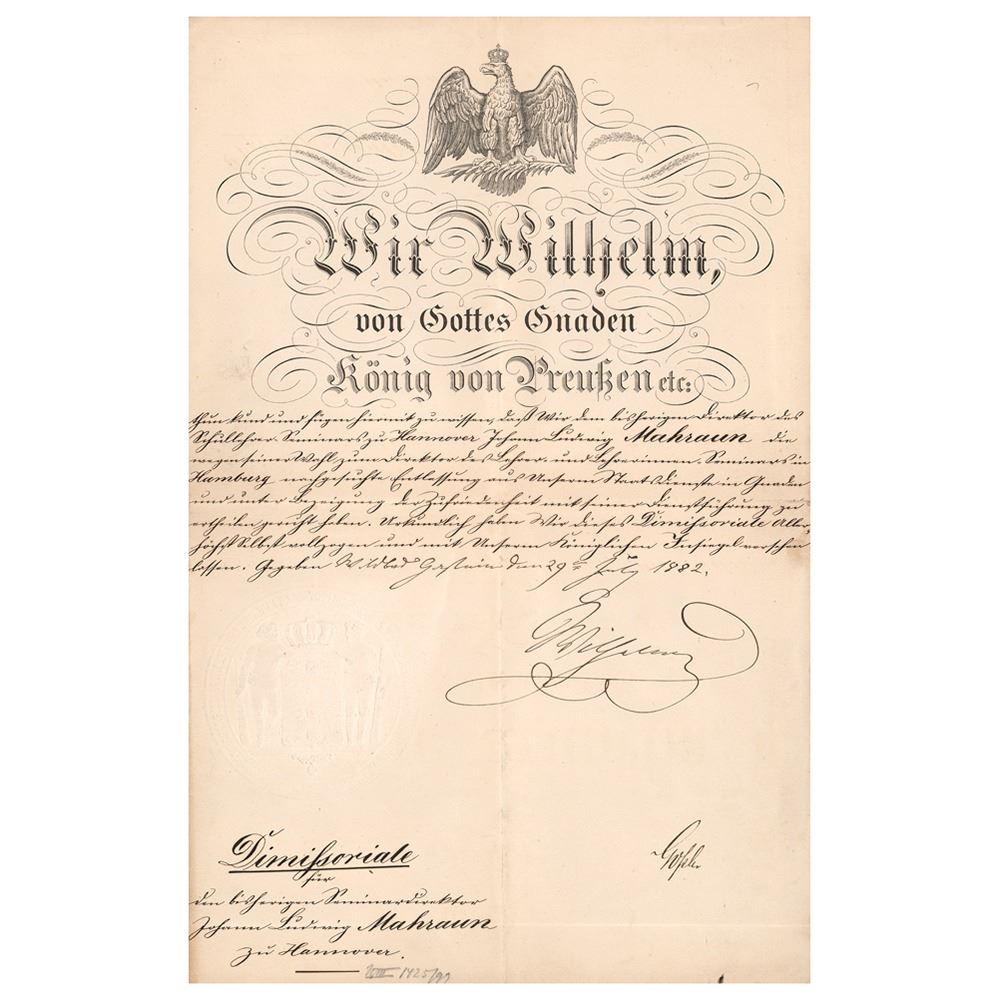 Wir Wilhelm,
von Gottes Gnaden
König von Preußen etc:
thun kund und fügen hiermit zu wissen, daß Wir dem bisherigen Direktor des
Schullehrer-Seminars zu Hannover Johann Ludwig Mahraun die
wegen seiner Wahl zum Direktor des Lehrer- und Lehrerinnen-Seminars in
Hamburg nachgesuchte Entlassung aus Unserm Staatsdienste in Gnaden
und unter Bezeigung der Zufriedenheit mit seiner Dienstführung zu
ertheilen geruht haben. Urkundlich haben Wir dieses Dimissoriale Aller-
höchst Selbst vollzogen und mit Unserm Königlichen Insiegel versehen
lassen. Gegeben Wildbad Gastein den 29ten July 1882.
Wilhelm
Goßler
Dimissoriale
für
den bisherigen Seminardirektor
Johann Ludwig Mahraun
zu Hannover.
1425/99